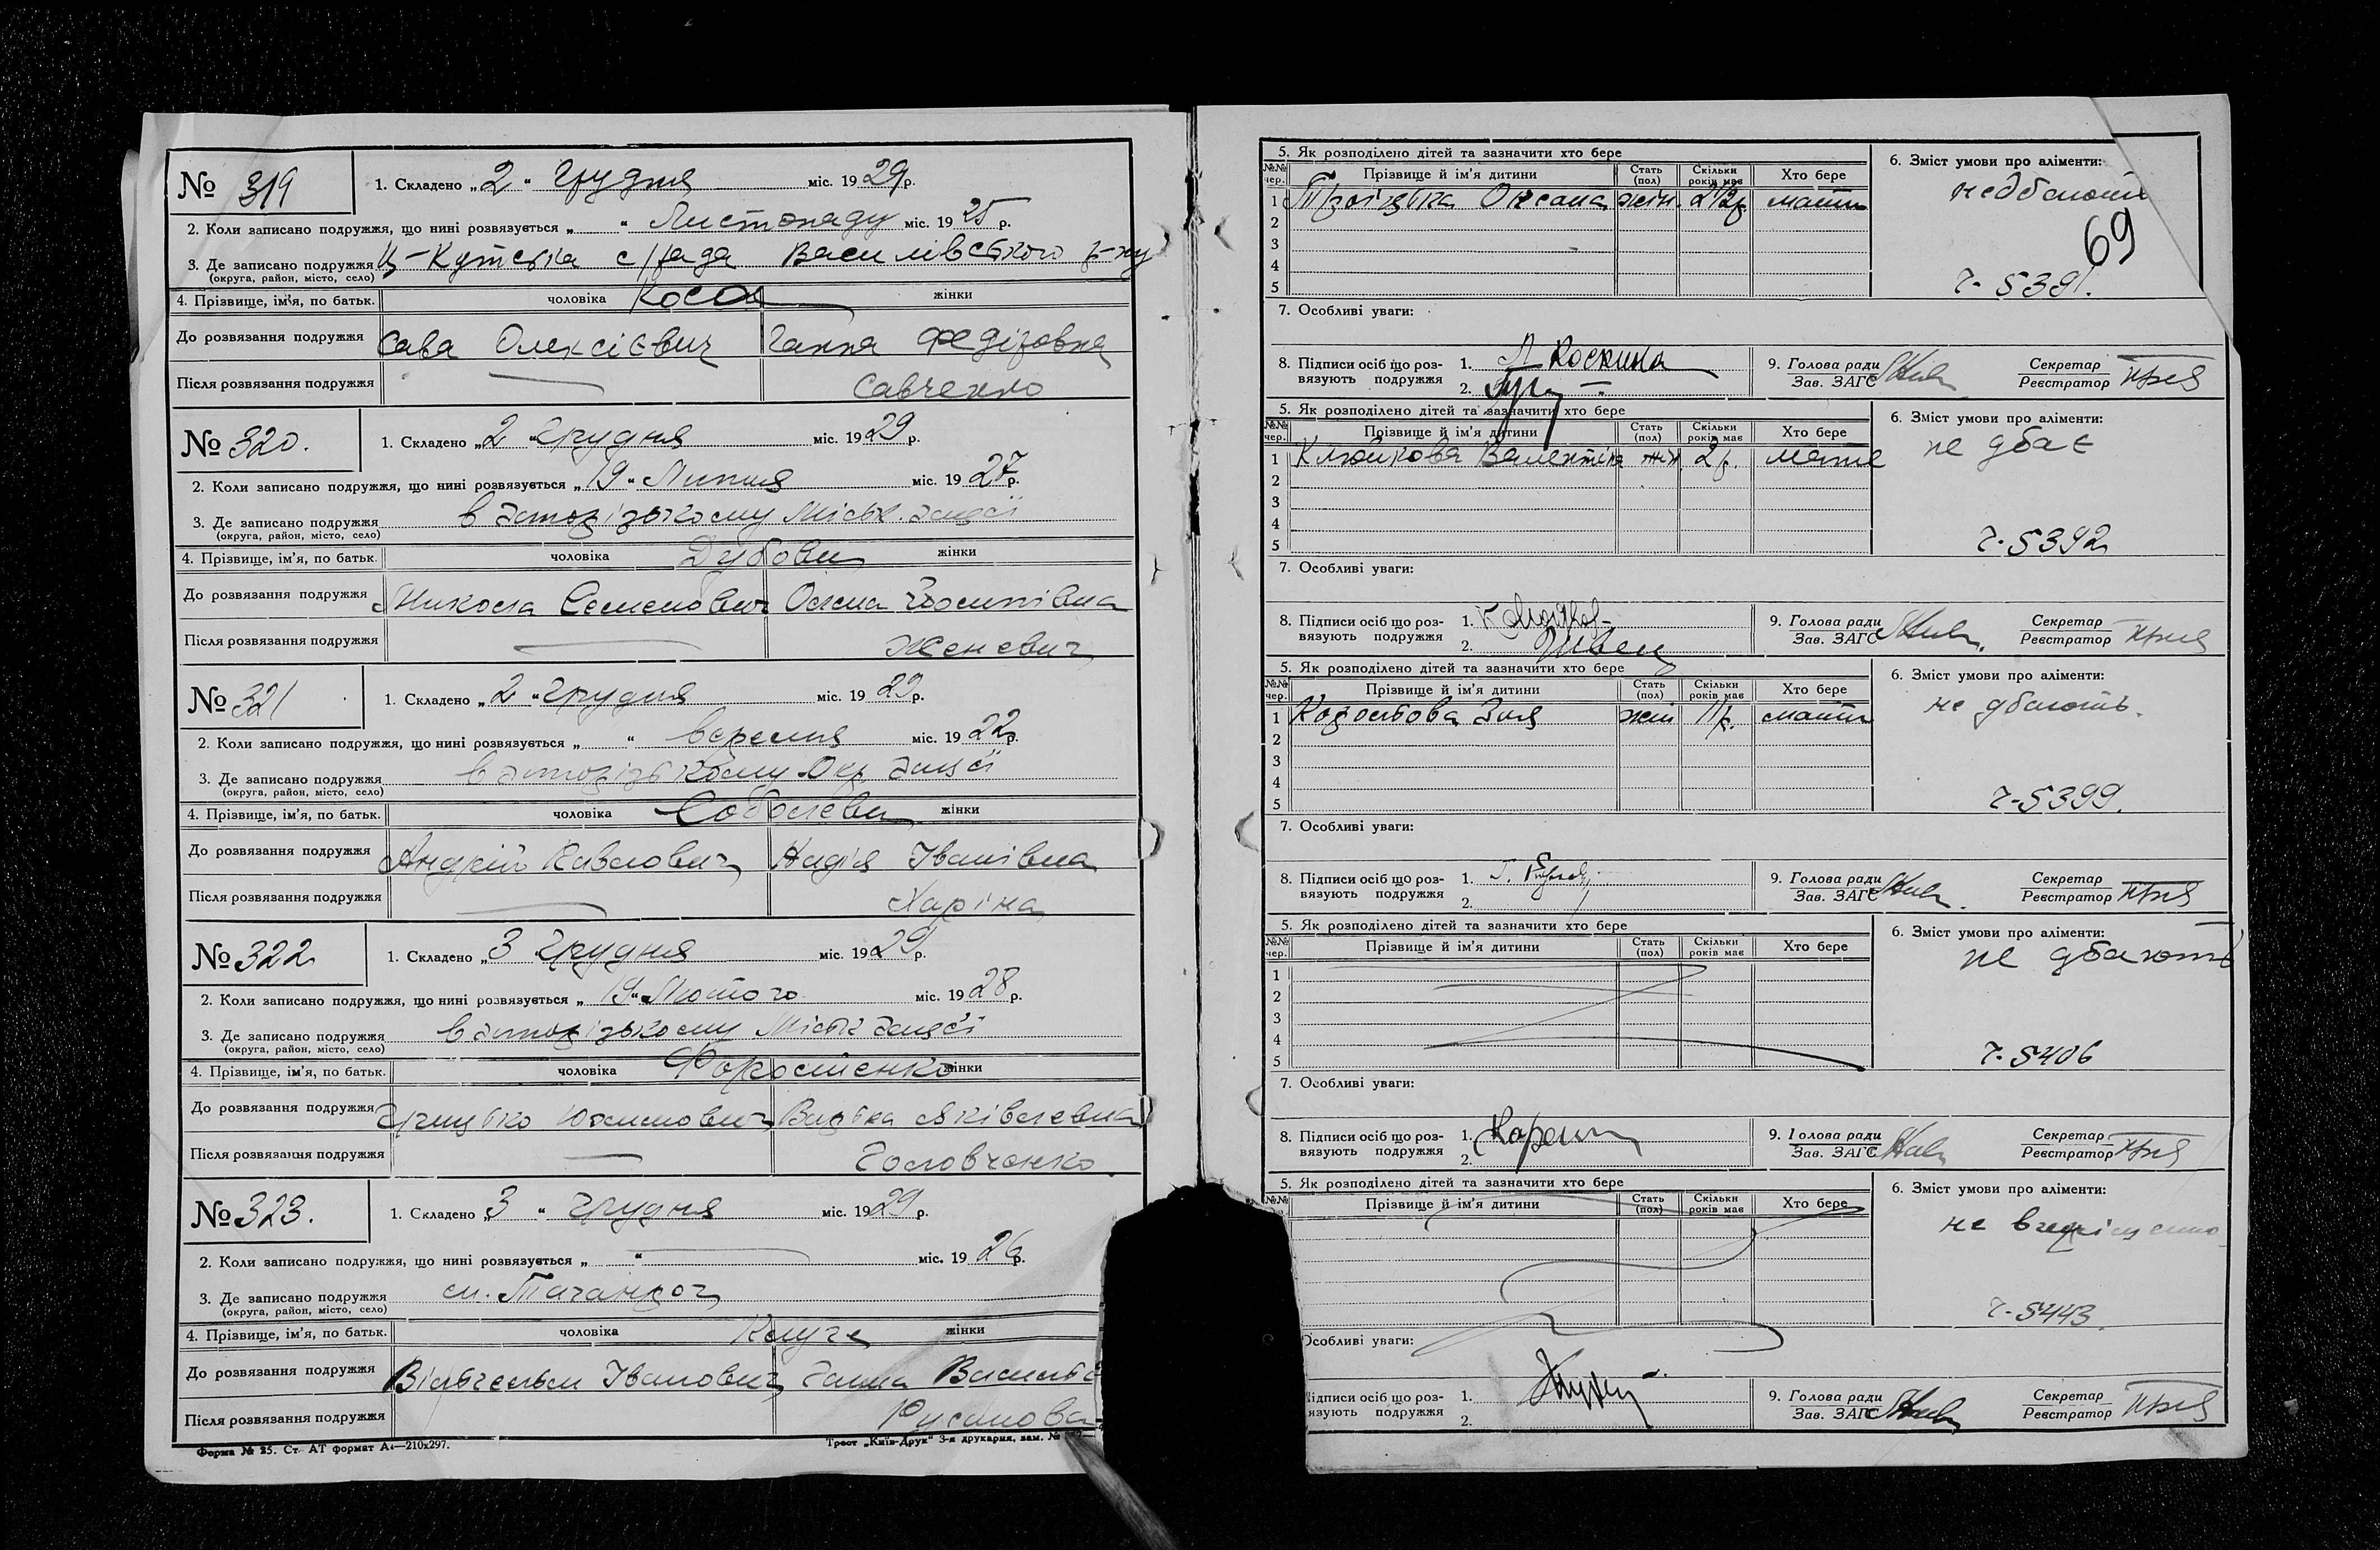 № 319
1. Складено „2“ Грудня міс. 1929 р.
2. Коли записано подружжя, що нині розвязується „ “ Листопаду міс. 1925 р.
3. Де записано подружжя Ц-Кутська с/рада Василівського р-ну
(округа, район, місто, село)
4. Прізвище, ім'я, по батьк. чоловіка жінки
До розвязання подружжя Сава Олексієвич Ганна Федірівна
Після розвязання подружжя — Савченко
№ 320.
1. Складено „2“ Грудня міс. 1929 р.
2. Коли записано подружжя, що нині розвязується „19“ Липня міс. 1927 р.
3. Де записано подружжя в Запорізькому Міськ. Загсі
(округа, район, місто, село)
4. Прізвище, ім'я, по батьк. чоловіка Дубови жінки
До розвязання подружжя Микола Семенович Олена Йосипівна
Після розвязання подружжя — Женевич
№ 321
1. Складено „2“ Грудня міс. 1929 р.
2. Коли записано подружжя, що нині розвязується „ “ вересня міс. 1922 р.
3. Де записано подружжя в Запорізькому Окр. Загсі
(округа, район, місто, село)
4. Прізвище, ім'я, по батьк. чоловіка Соболеви жінки
До розвязання подружжя Андрій Павлович Надія Іванівна
Після розвязання подружжя — Харіна
№ 322
1. Складено „3 Грудня міс. 1929 р.
2. Коли записано подружжя, що нині розвязується „19“ Лютого міс. 1928 р.
3. Де записано подружжя в Запорізькому Міськ Загсі
(округа, район, місто, село)
4. Прізвище, ім'я, по батьк. чоловіка Форостенко жінки
До розвязання подружжя Грицько Юхимович Яківлевна
Після розвязання подружжя — Головченко
№ 323.
1. Складено „3“ Грудня міс. 1929 р.
2. Коли записано подружжя, що нині розвязується „ “ — міс. 1926 р.
3. Де записано подружжя см. Таганрог
(округа, район, місто, село)
4. Прізвище, ім'я, по батьк. чоловіка жінки
До розвязання подружжя Вільгельм Іванович Ганна
Після розвязання подружжя Русанова
Форма № 25. Ст. АТ формат А4—210x297. Трест „Київ-Друк“ 3-я друкарня, зам. №
5. Як розподілено дітей та зазначити хто бере 6. Зміст умови про аліменти:
№№ чер. Прізвище й ім'я дитини Стать (пол) Скільки років має Хто бере
1 Оксана жін. мати
2
3 69
4
5 г-5391.
7. Особливі уваги:
8. Підписи осіб що розвязують подружжя 1. 2. 9. Голова ради Зав. ЗАГС Секретар Реєстратор
5. Як розподілено дітей та зазначити хто бере 6. Зміст умови про аліменти:
№№ чер. Прізвище й ім'я дитини Стать (пол) Скільки років має Хто бере не дбає
1 Валентіна жін. 2 р. мати
2
3
4
5 г-5392
7. Особливі уваги:
8. Підписи осіб що розвязують подружжя 1. 2. Швец 9. Голова ради Зав. ЗАГС Секретар Реєстратор
5. Як розподілено дітей та зазначити хто бере 6. Зміст умови про аліменти:
№№ чер. Прізвище й ім'я дитини Стать (пол) Скільки років має Хто бере не дбають.
1 Зоя жін мати
2
3
4
5 г-5399.
7. Особливі уваги:
8. Підписи осіб що розвязують подружжя 1. 2. 9. Голова ради Зав. ЗАГС Секретар Реєстратор
5. Як розподілено дітей та зазначити хто бере 6. Зміст умови про аліменти:
№№ чер. Прізвище й ім'я дитини Стать (пол) Скільки років має Хто бере не дбають
1
2
3
4
5 г-5406
7. Особливі уваги:
8. Підписи осіб що розвязують подружжя 1. 2. 9. Голова ради Зав. ЗАГС Секретар Реєстратор
5. Як розподілено дітей та зазначити хто бере 6. Зміст умови про аліменти:
№№ Прізвище й ім'я дитини Стать (пол) Скільки років має Хто бере
не вирішено
г-5443.
Особливі уваги:
Підписи осіб що розвязують подружжя 1. 2. 9. Голова ради Зав. ЗАГС Секретар Реєстратор